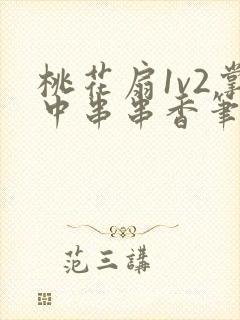 桃花扇1v2掌
中串串香筆
范三講